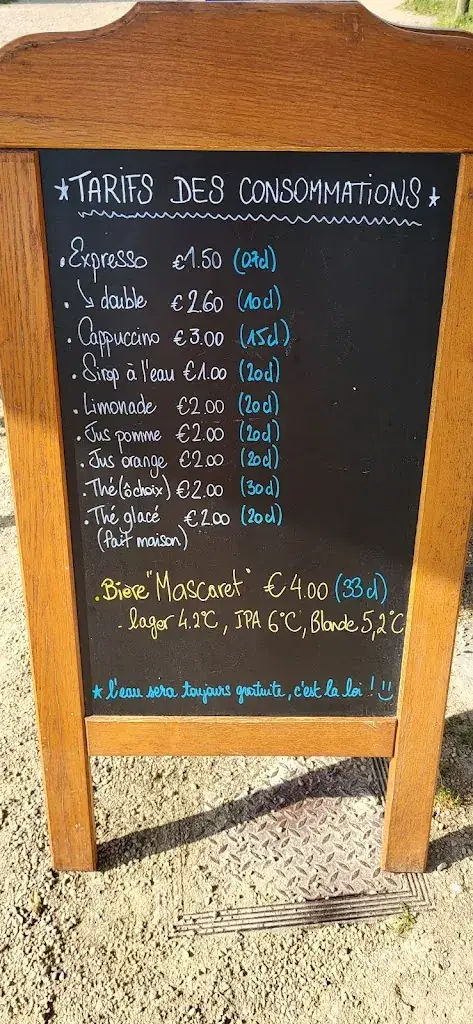 ★ TARIFS DES CONSOMMATIONS ★
• Expresso €1.50 (0.7cl)
• ↳ double €2.60 (10cl)
• Cappuccino €3.00 (15cl)
• Sirop à l'eau €1.00 (20cl)
• Limonade €2.00 (20cl)
• Jus pomme €2.00 (20cl)
• Jus orange €2.00 (20cl)
• Thé (ô choix) €2.00 (30cl)
• Thé glacé €2.00 (20cl)
(fait maison)
• Bière "Mascaret" € 4.00 (33cl)
- lager 4.2°C, IPA 6°C, Blonde 5,2°C
★ l'eau sera toujours gratuite, c'est la loi ! :)